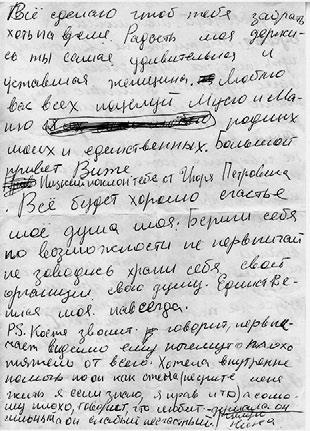 Всё сделаю чтоб тебя забрать
хоть на время. Радость моя держи-
сь ты самая удивительная и
уставшая женщина. Люблю
вас всех поцелуй Мусю и Ма-
ню родных
моих и единственных. Большой
привет Вике
Низкий поклон тебе от Игоря Петровича
. Всё будет хорошо счастье
моё душа моя. Береги себя
по возможности не нервничай
не заводись храни себя свой
организм свою душу. Единстве-
ная моя. навсегда.
PS. Костя звонит. говорит, нервни-
чает видимо ему почему-то плохо
тяжело от всего. Хотела внутренне
помочь но он как стена
я если знаю, я прав что
му плохо, говорит, что любит
он слабый несчастный.